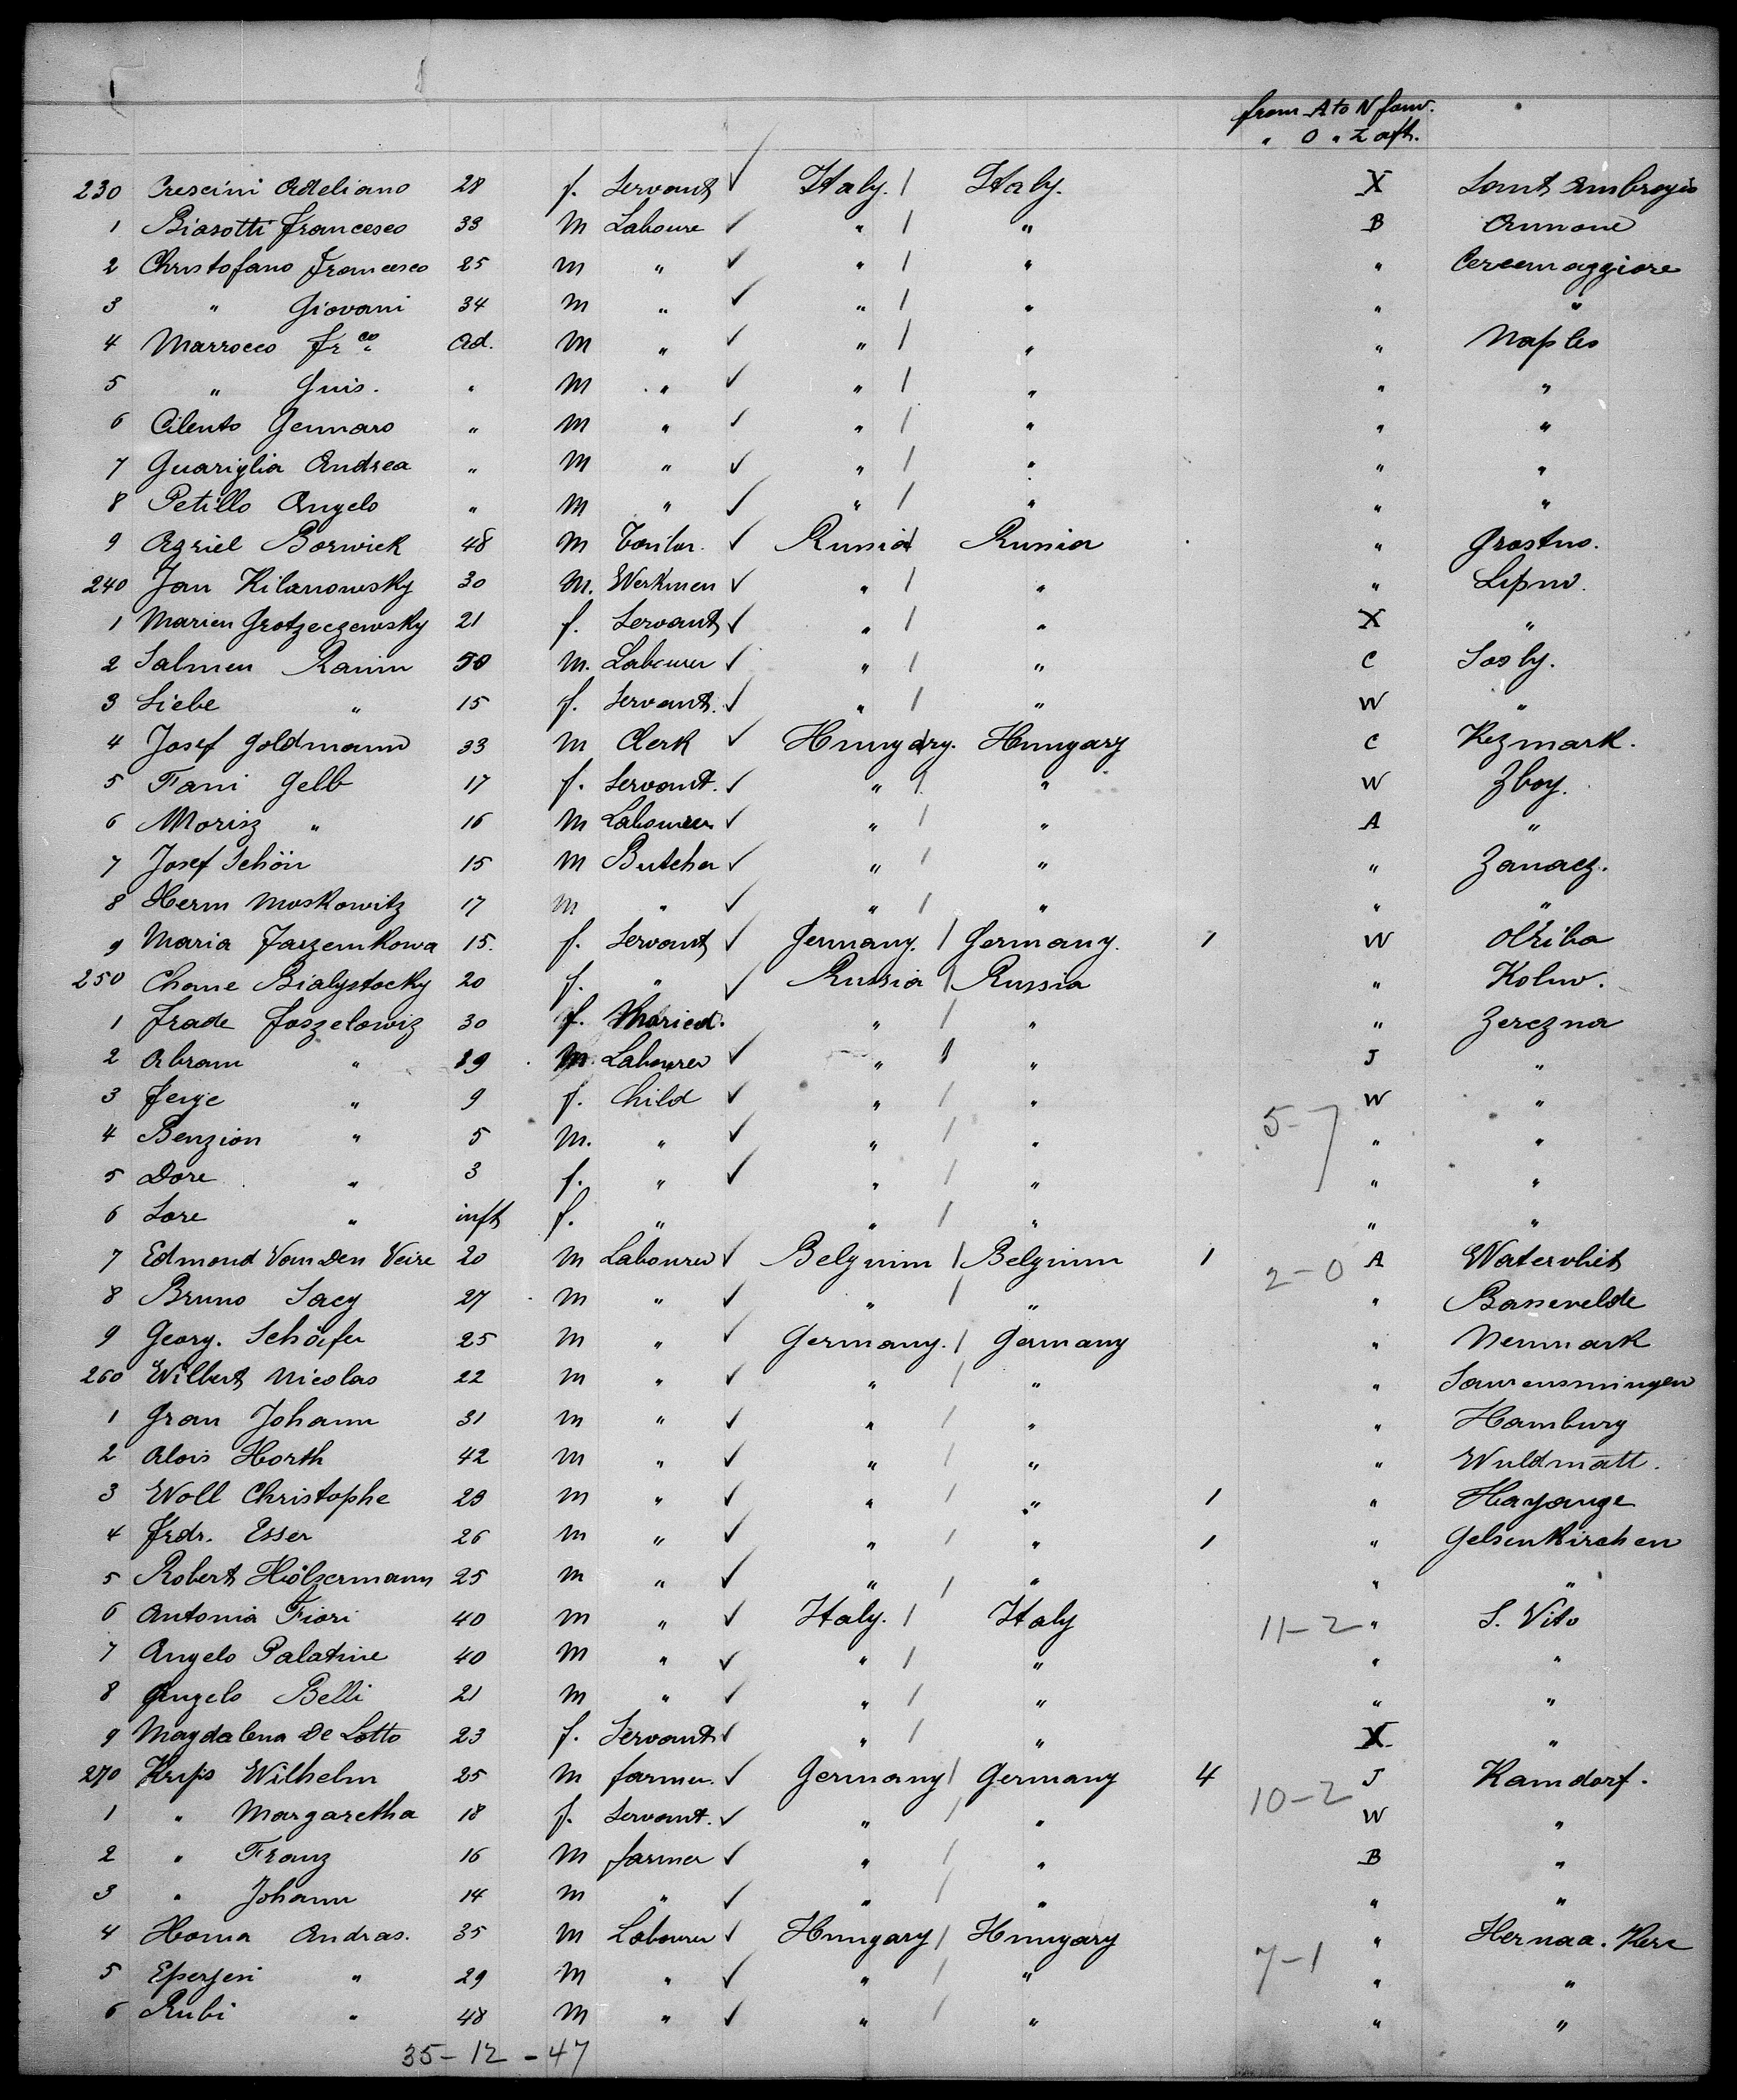 from A to N forw.
" O " Z aft.
230 Crescini Adeliano 28 f. Servant ✓ Italy. / Italy. X Sant Ambrogio
1 Biasotti Francesco 33 M Laboure ✓ " / " B Annone
2 Christofano Francesco 25 M " ✓ " / " " Cercemaggiore
3 " Giovani 34 M " ✓ " / " " "
4 Marrocco Fr co Ad. M " ✓ " / " " Naples
5 " Guis. " M " ✓ " / " " "
6 Cilento Gennaro " M " ✓ " / " " "
7 Guariglia Andrea " M " ✓ " / " " "
8 Petillo Angelo " M " ✓ " / " " "
9 Agriel Borwick 48 M ✓ Russia / Russia " Grostno.
240 Jan Kilanowsky 30 M. Werkmen ✓ " / " " Lipno.
1 Marien Grotzeczewsky 21 f. Servant ✓ " / " X "
2 Salmen Ranin 50 M. Labourer ✓ " / " C Sosly.
3 Liebe " 15 f. Servant. ✓ " / " W "
4 Josef Goldmann 33 M Clerk ✓ Hungary. Hungary C Kezmark.
5 Fani Gelb 17 f. Servant. ✓ " / " W Zboy.
6 Morisz " 16 M Labourer ✓ " / " A "
7 Josef Schön 15 M Butcher ✓ " / " " Zanacz.
8 Herm Moskowitz 17 M " ✓ " / " " "
9 Maria Jarzemkowa 15. f. Servant ✓ Germany. / Germany. 1 W Olziba
250 Chane Bialystocky 20 f. " ✓ Russia / Russia " Kolno.
1 Frade Joszelowiz 30 f. Maried. " / " " Zerezna
2 Abram " 19 M. Labourer ✓ " / " J "
3 Jenje " 9 f. Child ✓ " / " W "
5-7
4 Benzion " 5 M. " ✓ " / " " "
5 Dore " 3 f. " ✓ " / " " "
6 Lore " inft f. " " / " " "
7 Edmond Van Den Veire 20 M Labourer ✓ Belgium / Belgium 1 2-0 A Watervliet
8 Bruno Sacy 27 M " ✓ " / " " Bassevelde
9 Georg. Schäfer 25 M " ✓ Germany. / Germany " Neumark
260 Wilbert Nicolas 22 M " ✓ " / " "
1 Grau Johann 31 M " ✓ " / " " Hamburg
2 Alois Horth 42 M " ✓ " / " " Wuldmatt.
3 Woll Christophe 23 M " ✓ " / " 1 " Hayange
4 Frdr. Esser 26 M " ✓ " / " 1 " Gelsenkirchen
5 Robert Hölzermann 25 M " ✓ " / " " "
6 Antonia Fiori 40 M " ✓ Italy. / Italy 11-2 " S. Vito
7 Angelo Palatine 40 M " ✓ " / " " "
8 Angelo Belli 21 M " ✓ " / " " "
9 Magdalena De Lotto 23 f. Servant ✓ " / " X "
270 Krips Wilhelm 25 M farmer. ✓ Germany / Germany 4 10-2 J Kamdorf.
1 " Margaretha 18 f. Servant. ✓ " / " W "
2 " Franz 16 M farmer ✓ " / " B "
3 " Johann 14 M " ✓ " / " " "
4 Homa Andras. 35 M Labourer ✓ Hungary / Hungary " Hernaa. Kerc
7-1
5 Eperjesi " 29 M " ✓ " / " " "
6 Rubi " 48 M " ✓ " / " " "
35-12-47